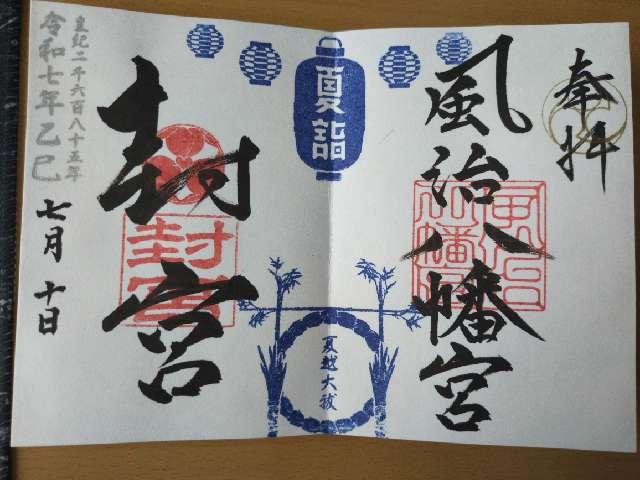 奉拝
風治八幡宮
風治
八幡宮
夏詣
夏越大祓
封宮
封宮
皇紀二千六百八十五年
令和七年乙巳
七月十日